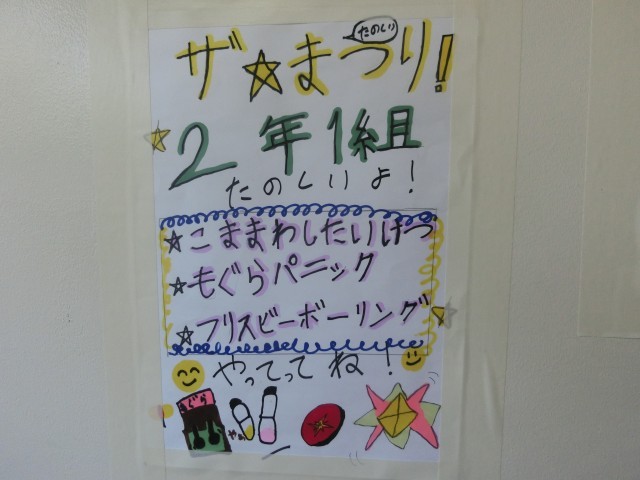 ザ☆まつり!
たのしい
2年1組
たのしいよ!
☆こままわしたいけつ
☆もぐらパニック
☆フリスビーボーリング
やってってね!
もぐら